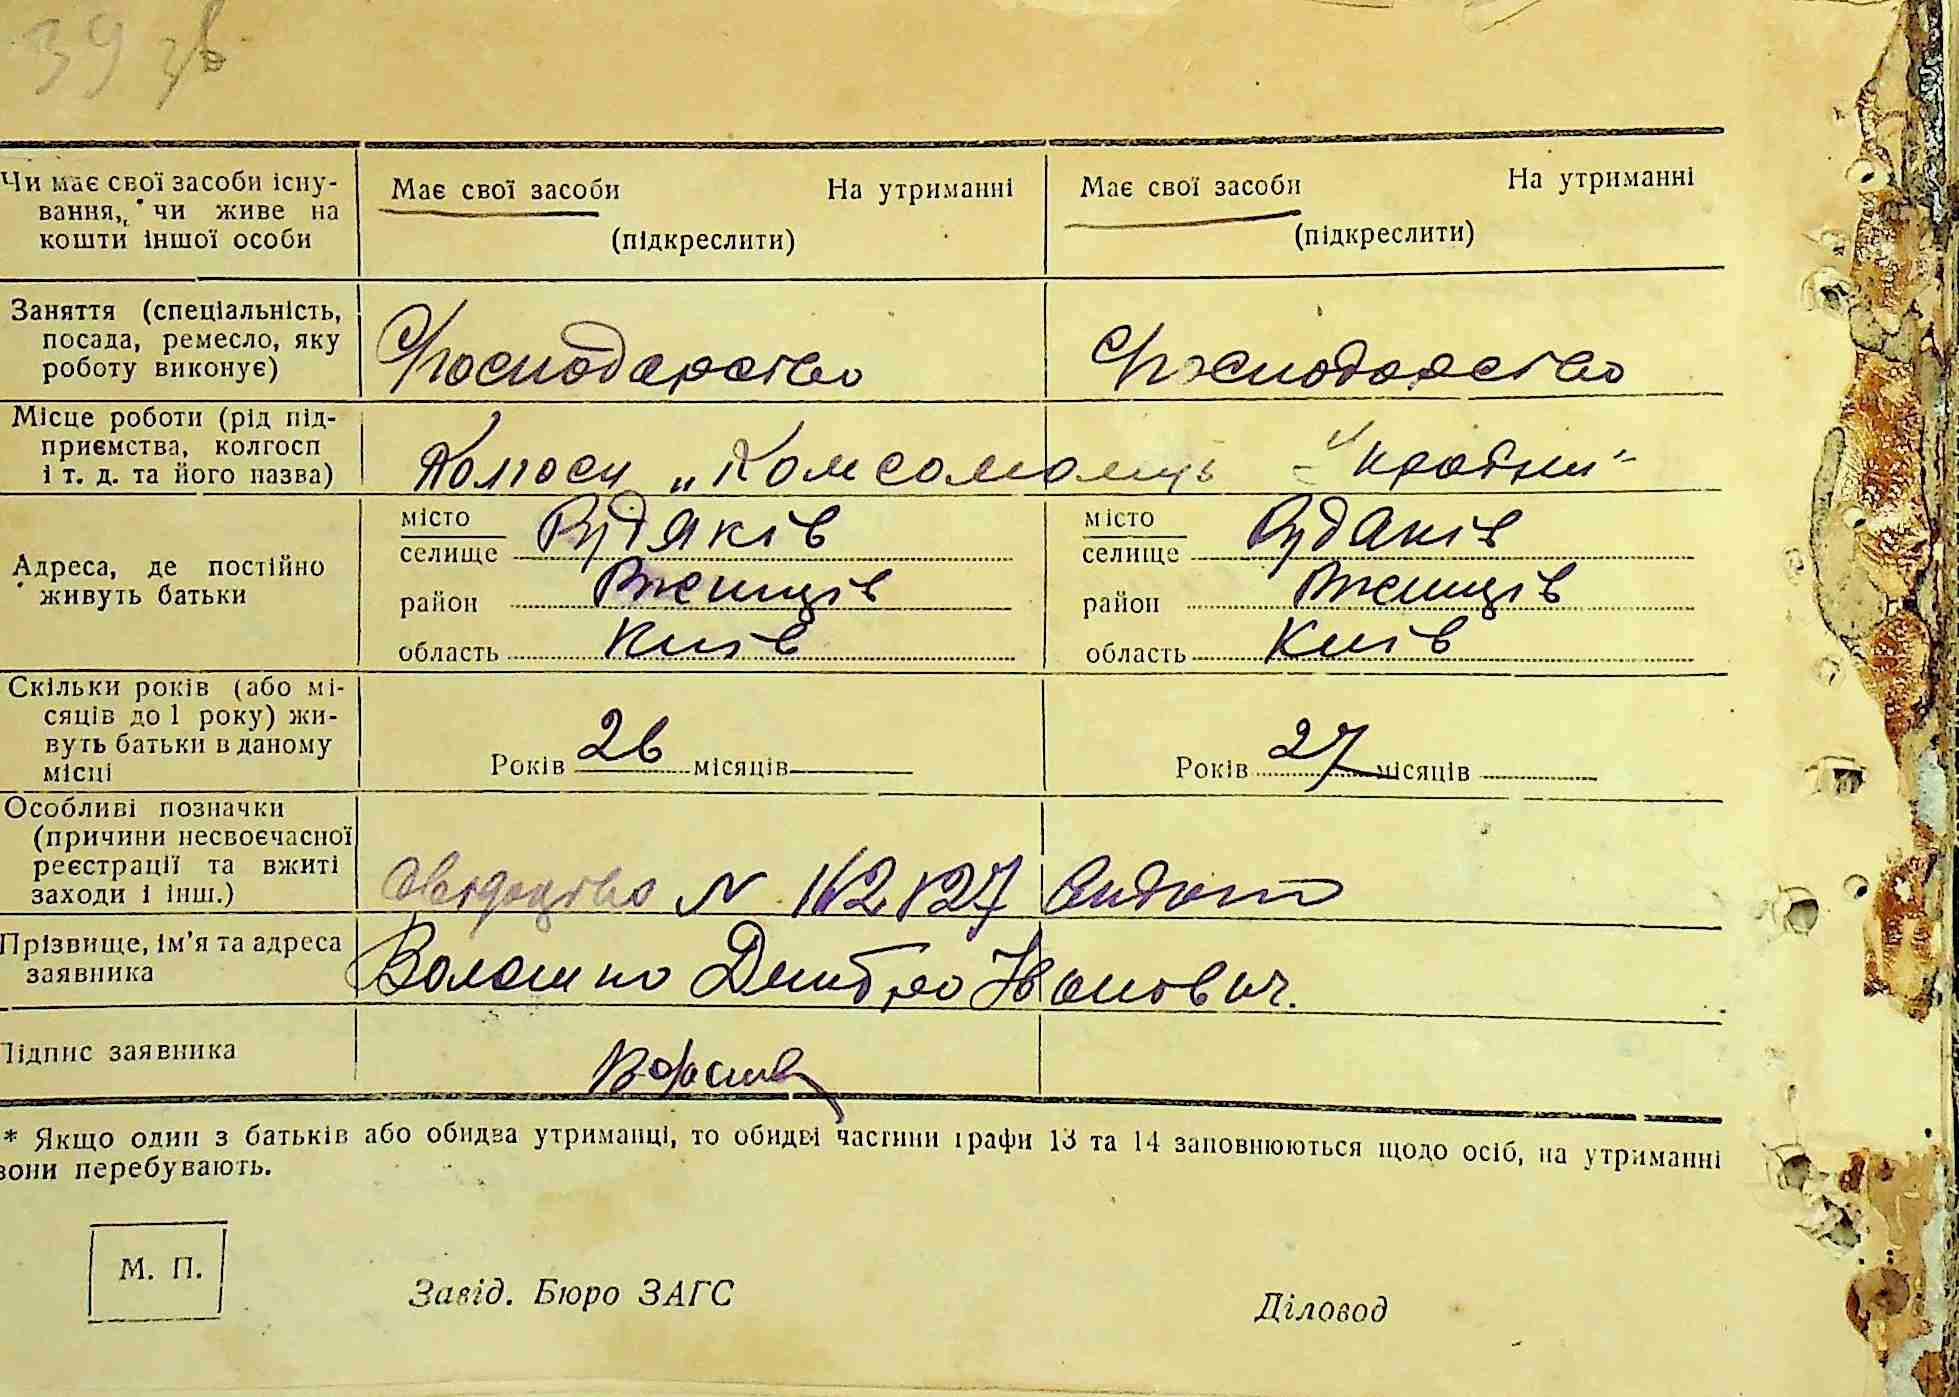 39 зв
Чи має свої засоби існу-
вання,* чи живе на
кошти іншої особи
Має свої засоби На утриманні
(підкреслити)
Має свої засоби На утриманні
(підкреслити)
Заняття (спеціальність,
посада, ремесло, яку
роботу виконує)
Господарство
Господарство
Місце роботи (рід під-
приємства, колгосп
і т. д. та його назва)
Колгосп „Комсомолець України"
Адреса, де постійно
живуть батьки
місто
селище Рудяків
район Вженщів
область Київ
місто
селище Рудяків
район Вженщів
область Київ
Скільки років (або мі-
сяців до 1 року) жи-
вуть батьки в даному
місці
Років 26 місяців
Років 27 місяців
Особливі позначки
(причини несвоєчасної
реєстрації та вжиті
заходи і інш.)
Свідоцтво N 162127
Прізвище, ім'я та адреса
заявника
Волошко Дмитро Іванович.
Підпис заявника
* Якщо один з батьків або обидва утриманці, то обидві частини графи 13 та 14 заповнюються щодо осіб, на утриманні
вони перебувають.
М. П.
Завід. Бюро ЗАГС
Діловод